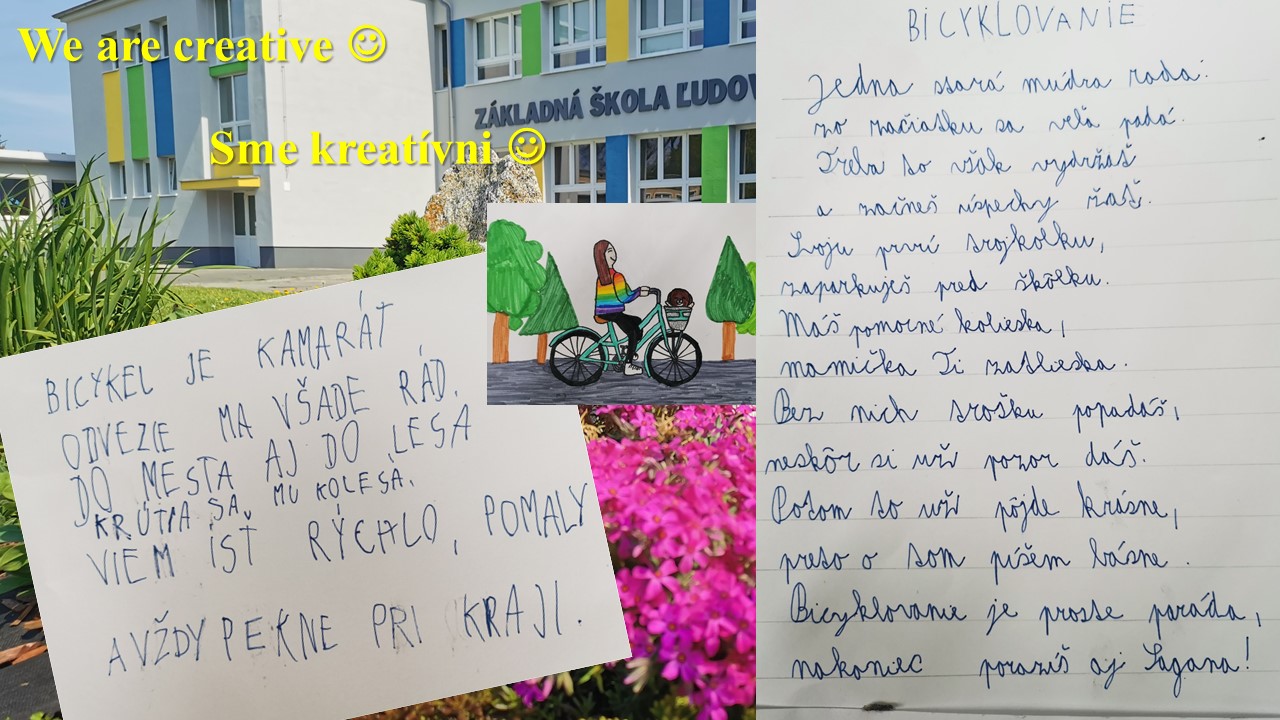 We are creative ☺
Sme kreatívni ☺
ZÁKLADNÁ ŠKOLA ĽUDOV
BICYKEL JE KAMARÁT
ODVEZIE MA VŠADE RÁD.
DO MESTA AJ DO LESA
KRÚTIA SA MU KOLESÁ.
VIEM ÍSŤ RÝCHLO, POMALY
A VŽDY PEKNE PRI KRAJI.
BICYKLOVANIE
Jedna stará múdra rada:
zo začiatku sa veľa padá.
Treba to však vydržať
a začneš úspechy žať.
Svoju prvú trojkolku,
zaparkuješ pred škôlku.
Máš pomocné kolieska,
mamička Ti zatlieska.
Bez nich trošku popadáš,
neskôr si už pozor dáš.
Potom to už pôjde krásne,
preto o tom píšem básne.
Bicyklovanie je proste paráda,
nakoniec porazíš aj Sagana!